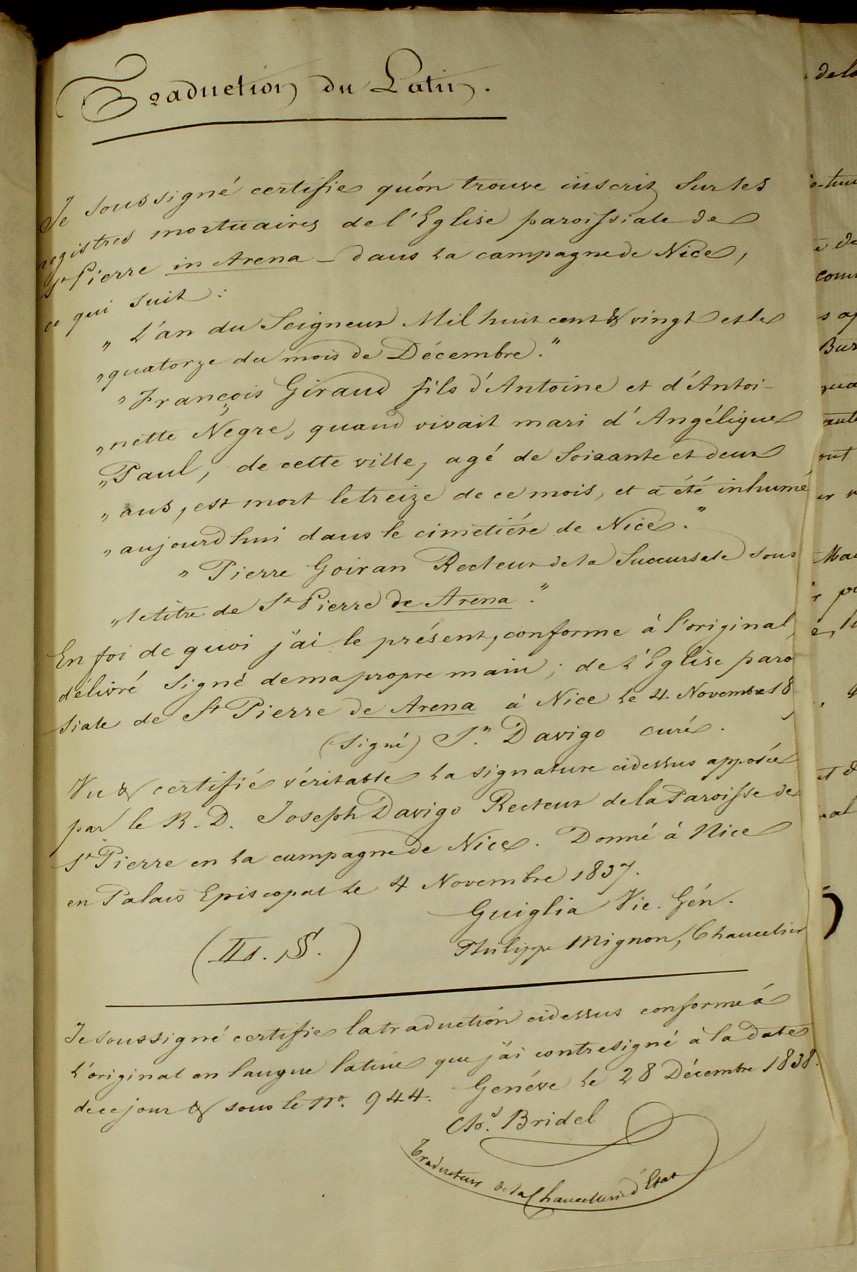 Traduction du Latin.
Je soussigné certifie qu'on trouve inscrit sur les
registres mortuaires de l'Eglise paroissiale de
St Pierre in Arena – dans la campagne de Nice,
ce qui suit :
„ L'an du Seigneur Mil huit cent & vingt et le
„ quatorze du mois de Décembre."
„ François Giraud fils d'Antoine et d'Antoi-
„ nette Negre, quand vivait mari d'Angélique
„ Paul, de cette ville, agé de Soixante et deux
„ ans, est mort le treize de ce mois, et a été inhumé
„ aujourd'hui dans le cimetière de Nice."
„ Pierre Goiran Recteur de la Succursale sous
„ le titre de St Pierre de Arena."
En foi de quoi j'ai le présent, conforme à l'original,
délivré signé de ma propre main ; de l'Eglise paro
siale de St Pierre de Arena à Nice le 4. Novembre 18
(signé) Jh Davigo curé.
Vu & certifié véritable la signature cidessus apposée
par le R. D. Joseph Davigo Recteur de la Paroisse de
St Pierre en la campagne de Nice. Donné à Nice
en Palais Episcopal le 4 Novembre 1837.
Guiglia Vic. Gén.
Philippe Mignon, Chancelier
Je soussigné certifie la traduction cidessus conforme à
l'original en langue latine que j'ai contresigné à la date
de ce jour & sous le No. 944. Genève le 28 Décembre 1838.
Chs Bridel
Traducteur de la Chancellerie d'Etat